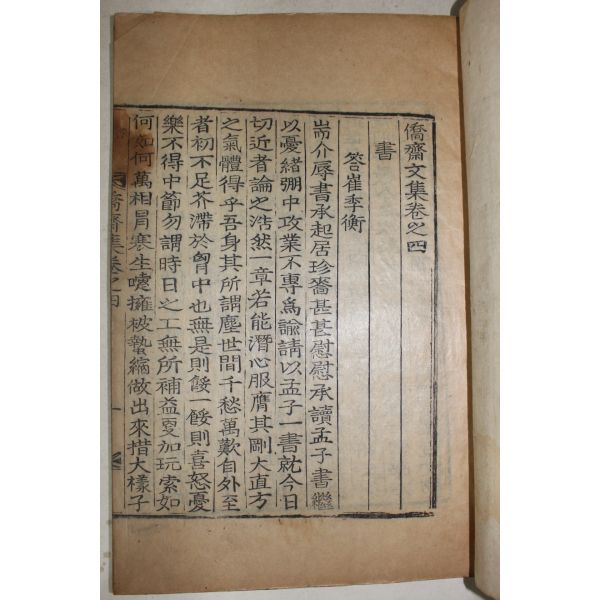 僑齋文集卷之四
書
答崔季衡
耑介辱書承起居珍嗇甚甚慰慰承讀孟子書繼
以憂緒弸中攻業不專爲諭請以孟子一書就今日
切近者論之浩然一章若能潛心服膺其剛大直方
之氣體得乎吾身其所謂塵世間千愁萬歎自外至
者初不足芥滯於胷中也無是則餒一餒則喜怒憂
樂不得中節勿謂時日之工無所補益更加玩索如
何如何萬相冐寒生嚏擁被蟄縮做出來措大樣子
僑齋集卷之四
一